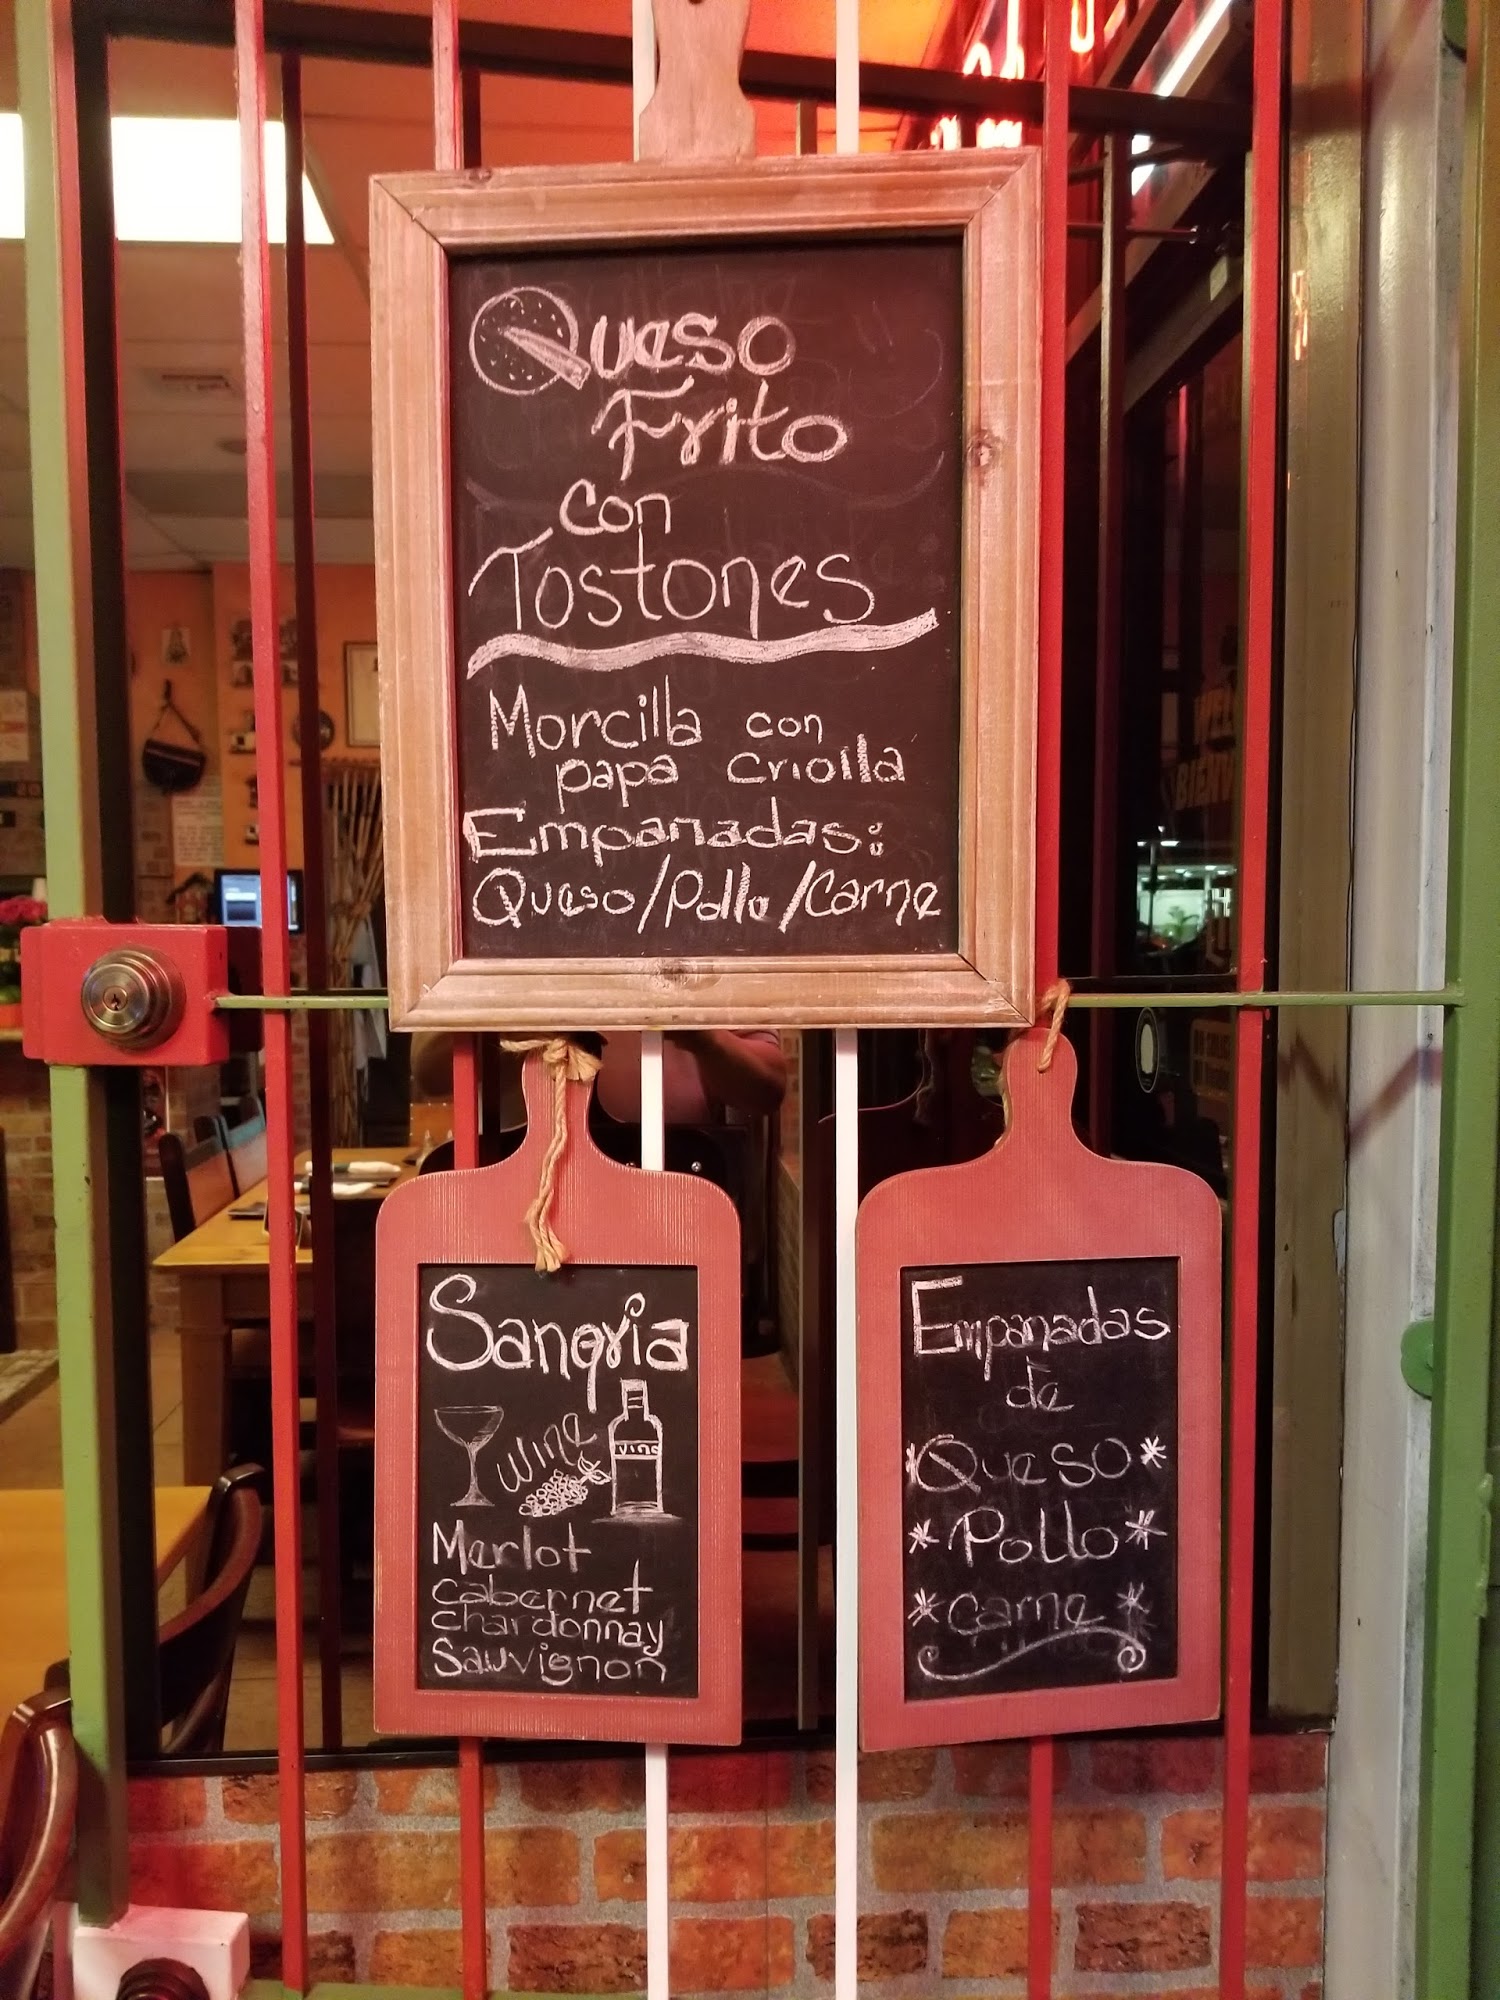 Queso
Frito
con
Tostones
Morcilla con
papa criolla
Empanadas:
Queso/Pollo/Carne
Sangria
Wine
vino
Merlot
cabernet
chardonnay
Sauvignon
Empanadas
de
*Queso*
*Pollo*
*carne*